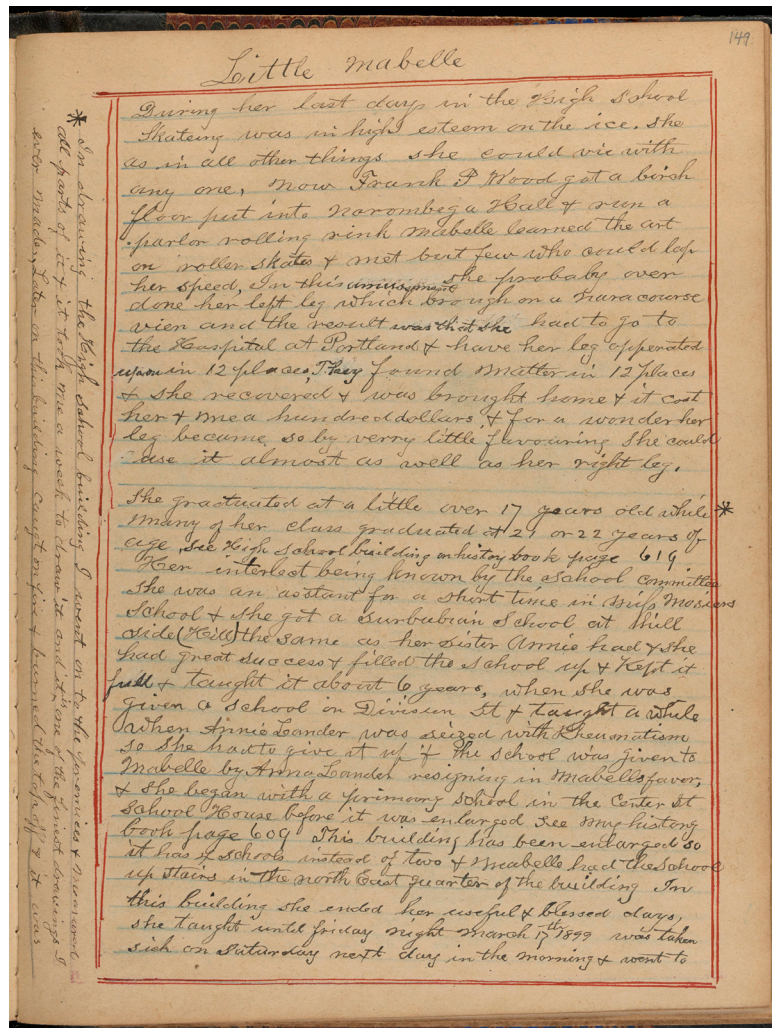 149
Little Mabelle
During her last days in the High School
Skateing was in high esteem on the ice. she
as in all other things she could vie with
any one, now Frank P Wood got a birch
floor put into Norombega Hall & run a
parlor rolling rink Mabelle learned the art
on roller skates & met but few who could lap
her speed, In this amusement she probably over
done her left leg which brough on a naracourse
vien and the result was that she had to go to
the Hospital at Portland & have her leg opperated
upon in 12 places, They found matter in 12 places
& she recovered & was brought home & it cost
her & me a hundred dollars & for a wonder her
leg became so by verry little favouring she could
use it almost as well as her right leg.
She graduated at a little over 17 years old while *
many of her class graduated at 21 or 22 years of
age see High School building on history book page 619
Her interest being known by the school committee
she was an asstant for a short time in Miss Mosiers
School & she got a surbubian School at thill
side (Hill) the same as her sister Annie had & she
had great success & filled the school up & Kept it
full & taught it about 6 years, when she was
given a school on Division St & taught a while
when Annie Lander was seized with Rheumatism
so she had to give it up & the school was given to
Mabelle by Anna Lander resigning in Mabells favor,
& she began with a primory school in the Center St
School House before it was enlarged see my history
book page 609 This building has been enlarged so
it has 4 schools instead of two & Mabelle had the School
up stairs in the north East quarter of the building In
this building she ended her useful & blessed days,
she taught until friday night March 17th 1899 was taken
sick on Saturday next day in the morning & went to
* In drawing the High School building I went on to the premices & measured
all parts of it & it took me a week to draw it and it is one of the finest drawings I
ever made, Later on this building caught on fire & burned the top off & it was